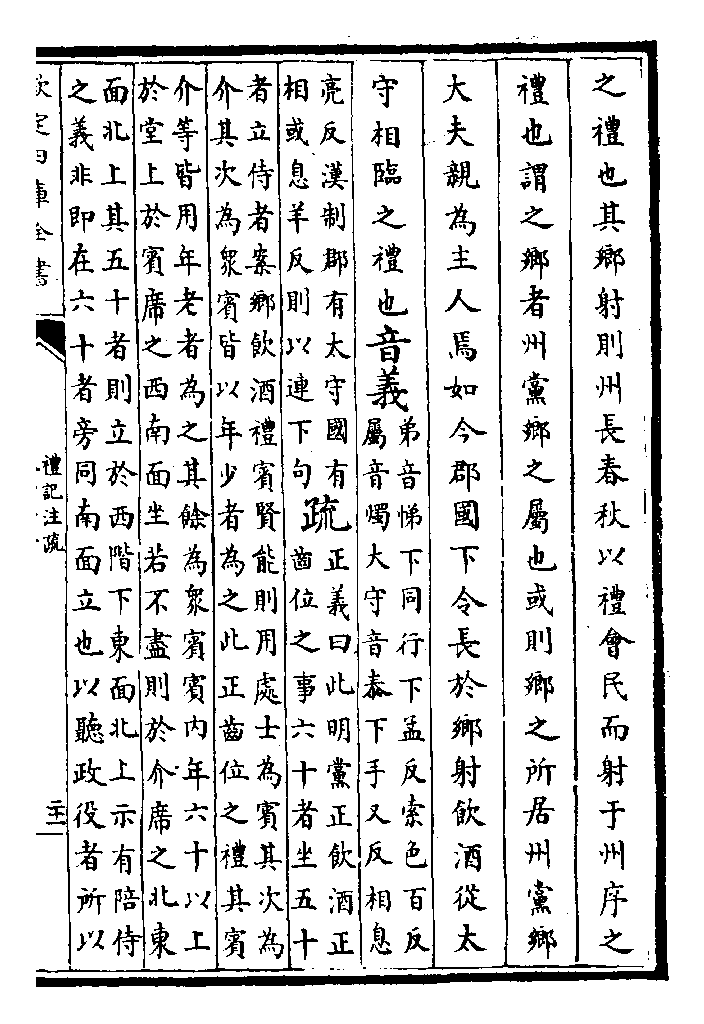 之禮也其鄉射則州長春秋以禮會民而射于州序之
禮也謂之鄉者州黨鄉之屬也或則鄉之所居州黨鄉
大夫親為主人焉如今郡國下令長於鄉射飲酒從太
守相臨之禮也音義
弟音悌下同行下孟反索色百反
屬音燭大守音泰下手又反相息
亮反漢制郡有太守國有
相或息羊反則以連下句
疏
正義曰此明黨正飲酒正
齒位之事六十者坐五十
者立侍者案鄉飲酒禮賓賢能則用處士為賓其次為
介其次為衆賓皆以年少者為之此正齒位之禮其賓
介等皆用年老者為之其餘為衆賓賓内年六十以上
於堂上於賓席之西南面坐若不盡則於介席之北東
面北上其五十者則立於西階下東面北上示有陪侍
之義非即在六十者旁同南面立也以聽政役者所以
欽定四庫全書
禮記注疏
二十一